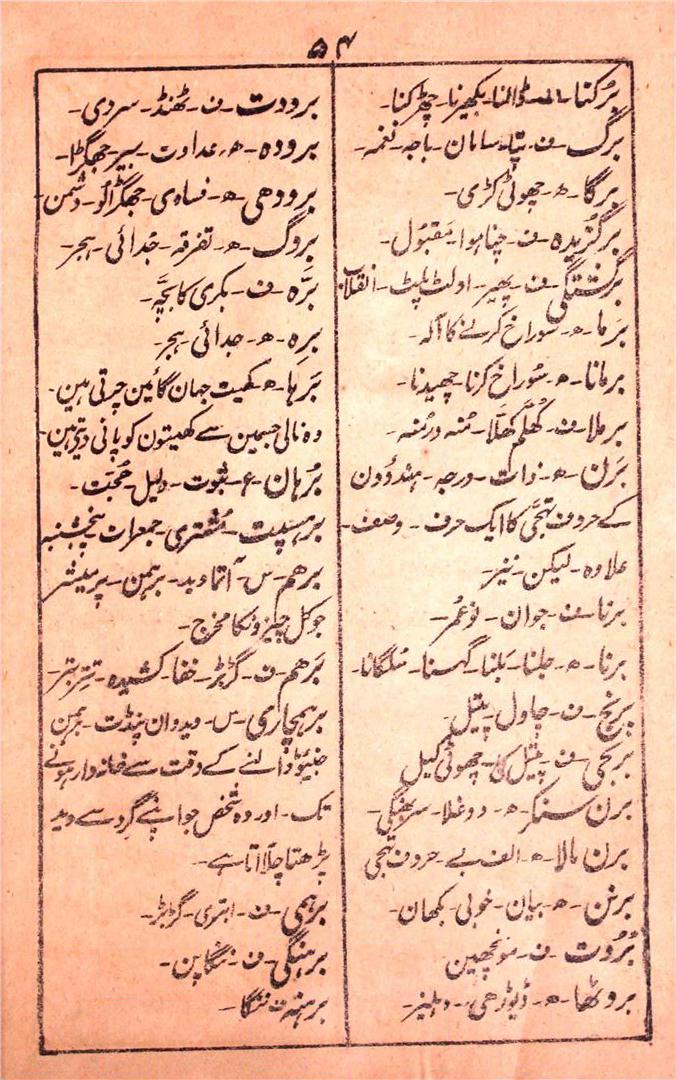 ۵۴
برکنا۔ ھ۔ ڈالنا۔ بکھیرنا۔ چھڑکنا۔
برگ۔ ف۔ پتا۔ سامان۔ باجہ۔ نغمہ۔
برگا۔ ھ۔ چھوٹی کڑی۔
برگزیدہ۔ ف۔ چنا ہوا۔ مقبول۔
برگشتگی۔ ف۔ پھیر۔ اولٹ پلٹ۔ انقلاب
برما۔ ھ۔ سوراخ کرنے کا آلہ۔
برمانا۔ ھ۔ سُوراخ کرنا۔ چھیدنا۔
برملا۔ ف۔ کُھلّم کھلّا۔ مُنہ در مُنہ۔
بَرَن۔ ھ۔ ذات۔ درجہ۔ ہندؤون
کے حروف تہجّی کا ایک حرف۔ وصف۔
علاوہ۔ لیکن۔ نیز۔
برنا۔ ف۔ جوان۔ نوعُمر۔
برنا۔ ھ۔ جلنا۔ بَلنا۔ گہسنا۔ سُلگانا۔
برنج۔ ف۔ چاول۔ پیتل۔
برنجی۔ ف۔ پیتل کی۔ چھوٹی کیل
برن سنکر۔ ھ۔ دوغلا۔ سربھنگی۔
برن مالا۔ ھ۔ الف بے۔ حروف تہجی
برنن۔ ھ۔ بیان۔ خوبی۔ بکھان۔
بُرُوت۔ ف۔ مونچھین
بروٹھا۔ ھ۔ ڈیوڑھی۔ دہلیز۔
برودت۔ ف۔ ٹھنڈ۔ سردی۔
برودہ۔ ھ۔ عداوت۔ بیر۔ جھگڑا۔
برودھی۔ ھ۔ فسادی۔ جھگڑالو۔ دشمن۔
بروگ۔ ھ۔ تفرقہ۔ جُدائی۔ ہجر۔
بَرّہ۔ ف۔ بکری کا بچّہ۔
برِہ۔ ھ۔ جدائی۔ ہجر۔
بَرہا۔ ھ۔ کھیت جہان گائین چرتی ہین۔
وہ نالی جسمین سے کھیتون کو پانی دیتے ہین۔
بُرہان۔ ع۔ ثبوت۔ دلیل۔ حُجّت۔
برہسپت۔ مُشتری۔ جمعرات۔ پنجشنبہ
برھم۔ س۔ آتما۔ وید۔ برہمن۔ پرمیشر
جو کل چیزونکا مخرج۔
بَرھم۔ ف۔ گڑبڑ۔ خفا۔ کشیدہ۔ تتر بتر۔
برہمچاری۔ س۔ ویدوان پنڈت۔ برہمن
جنیؤ ڈالنے کے وقت سے خانہ دار ہونے
تک۔ اور وہ شخص جو اپنے گرو سے وید
پڑھتا چلا آتا ہے۔
برہمی۔ ف۔ ابتری۔ گڑبڑ۔
برہنگی۔ ف۔ ننگا پن۔
برہنہ۔ ف۔ ننگا۔